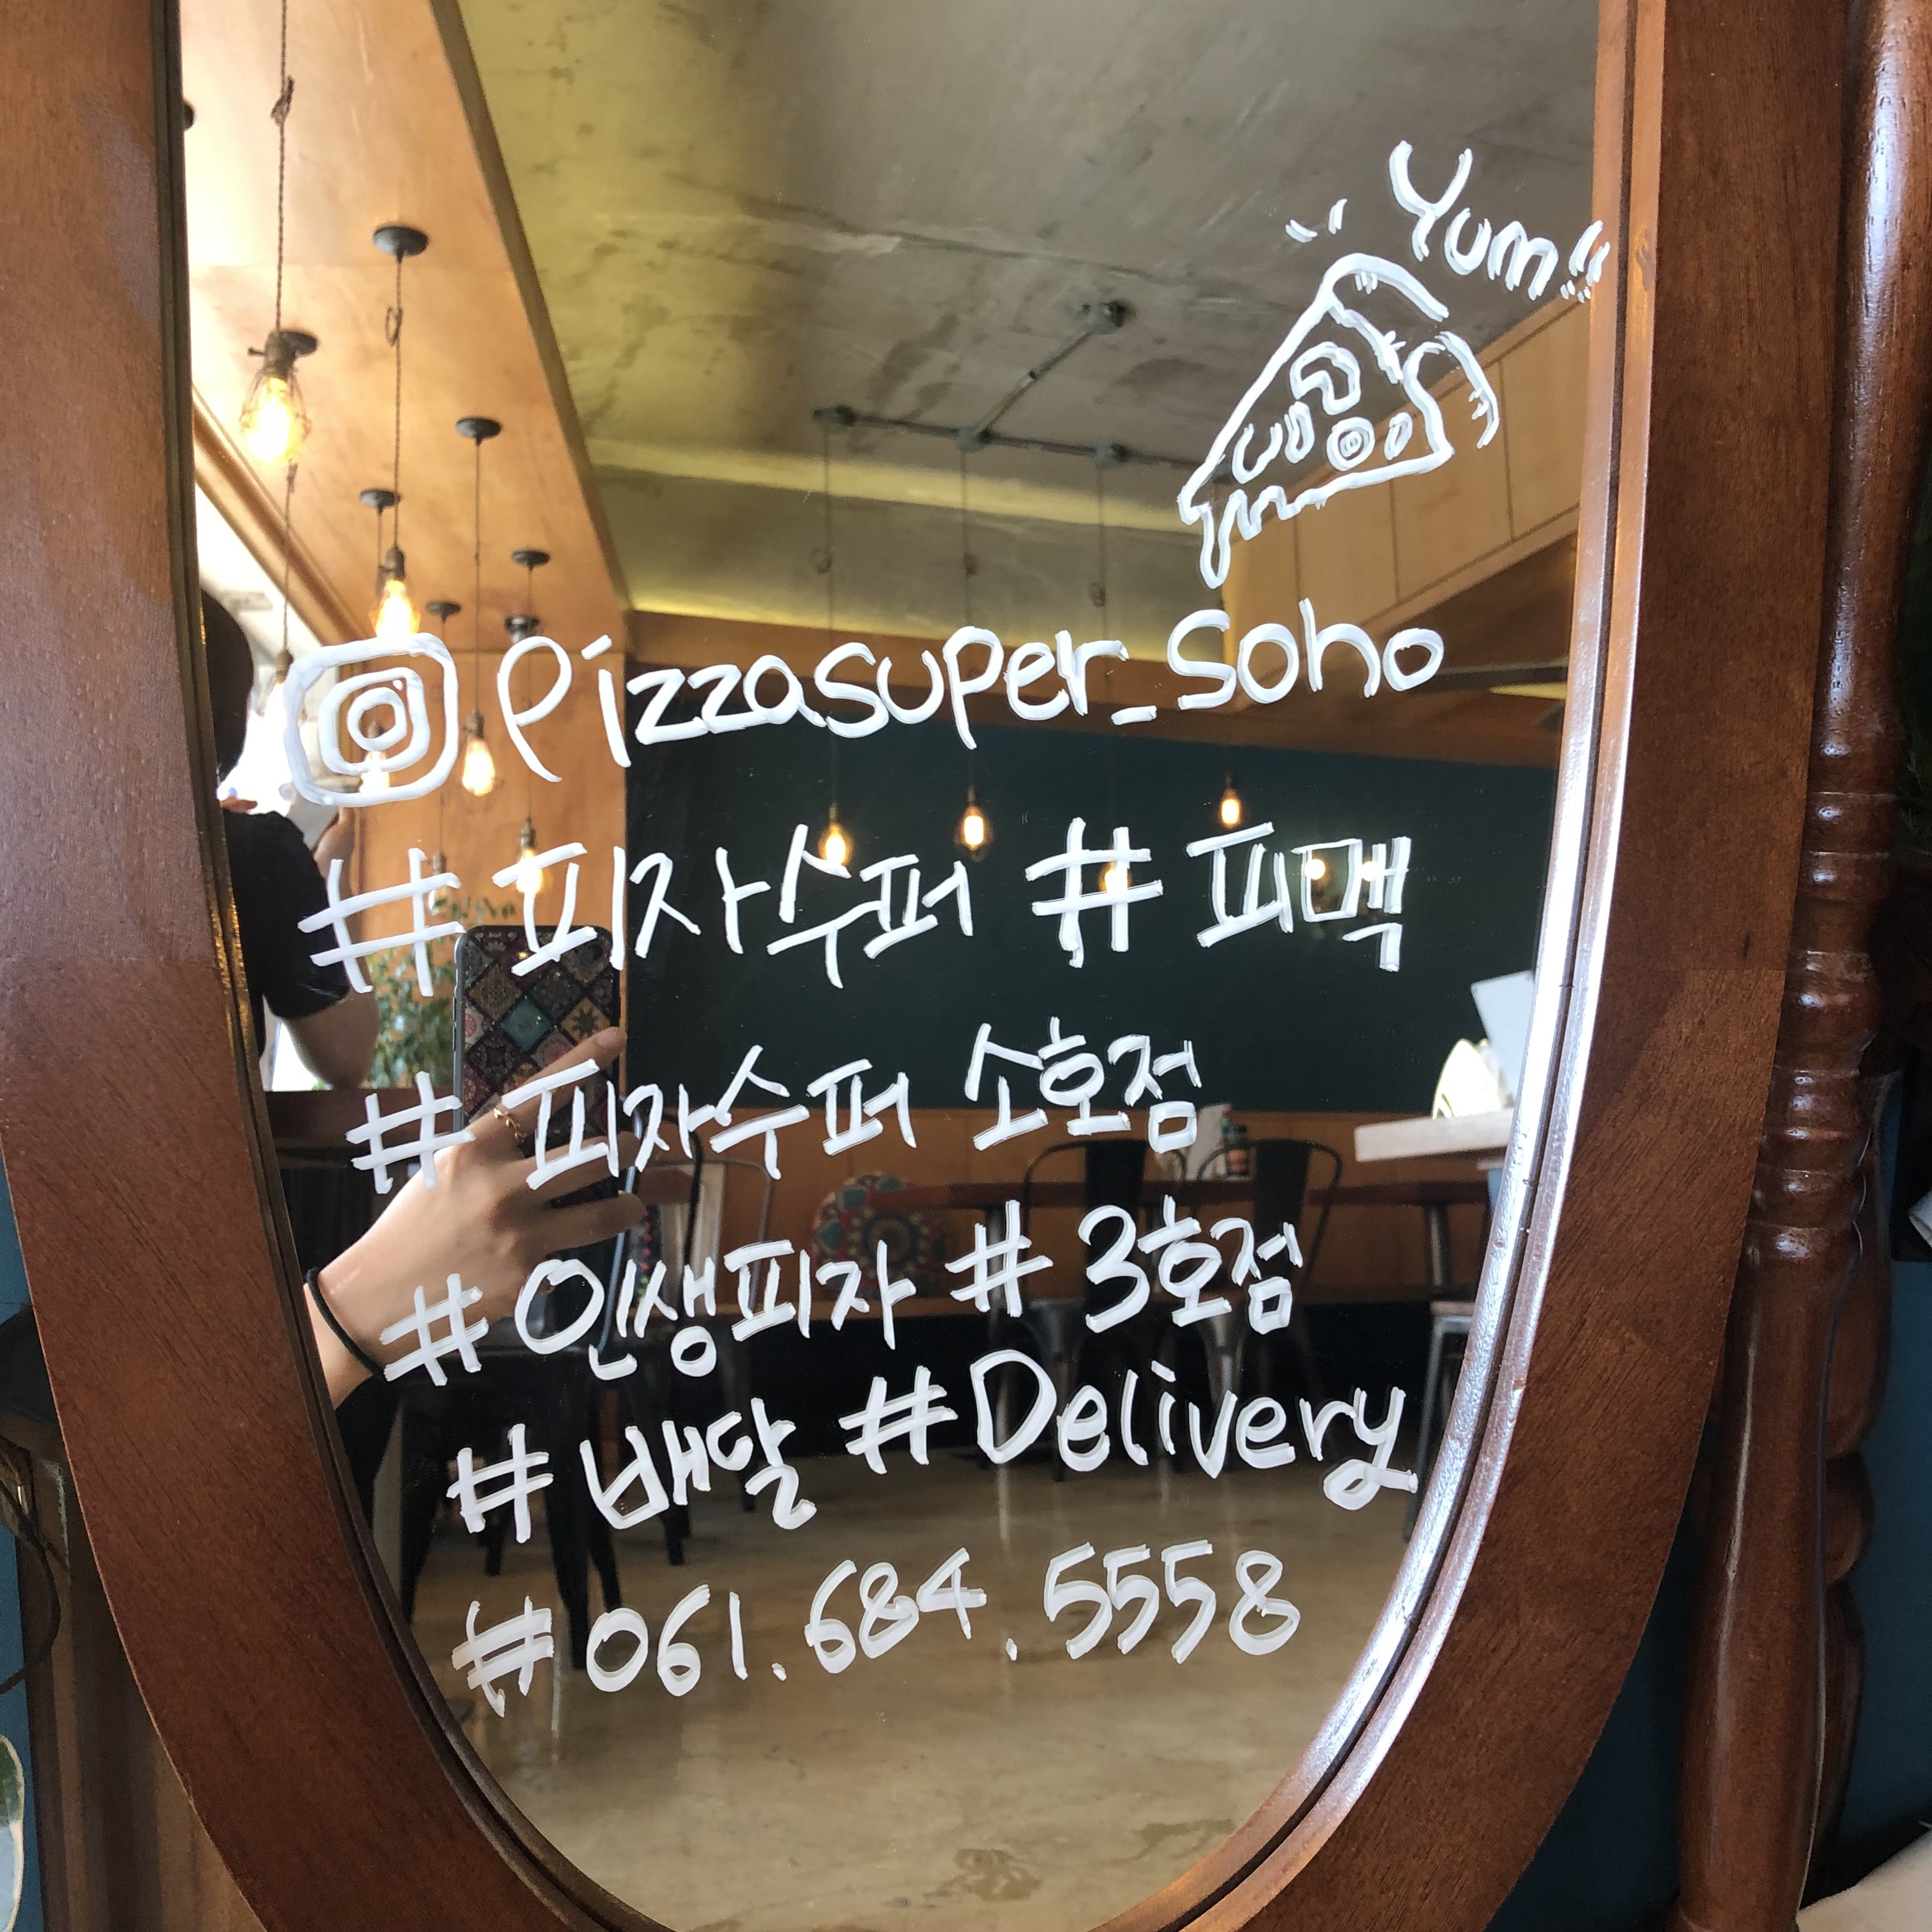 Yum!!
pizzasuper_soho
#피자수퍼 #피맥
#피자수퍼 소호점
#인생피자 #3호점
#배달 #Delivery
#061.684.5558